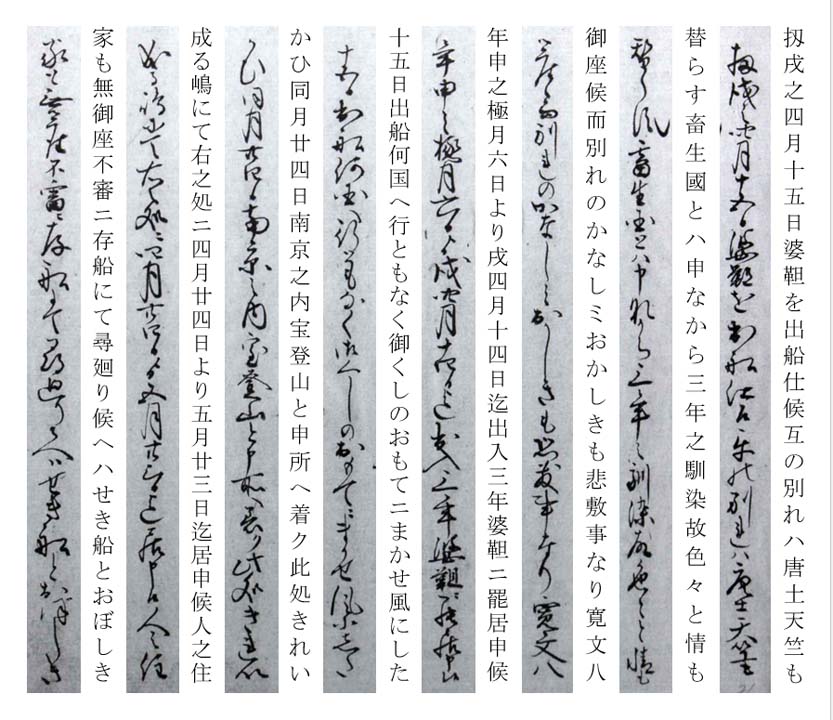 扨戌之四月十五日婆靼を出船仕候互の別れハ唐土天竺も
替らす畜生國とハ申なから三年之馴染故色々と情も
御座候而別れのかなしミおかしきも悲敷事なり寛文八
年申之極月六日より戌四月十四日迄出入三年婆靼ニ罷居申候
十五日出船何国へ行ともなく御くしのおもてニまかせ風にした
かひ同月廿四日南京之内宝登山と申所へ着ク此処きれい
成る嶋にて右之処ニ四月廿四日より五月廿三日迄居申候人之住
家も無御座不審ニ存船にて尋廻り候へハせき船とおぼしき